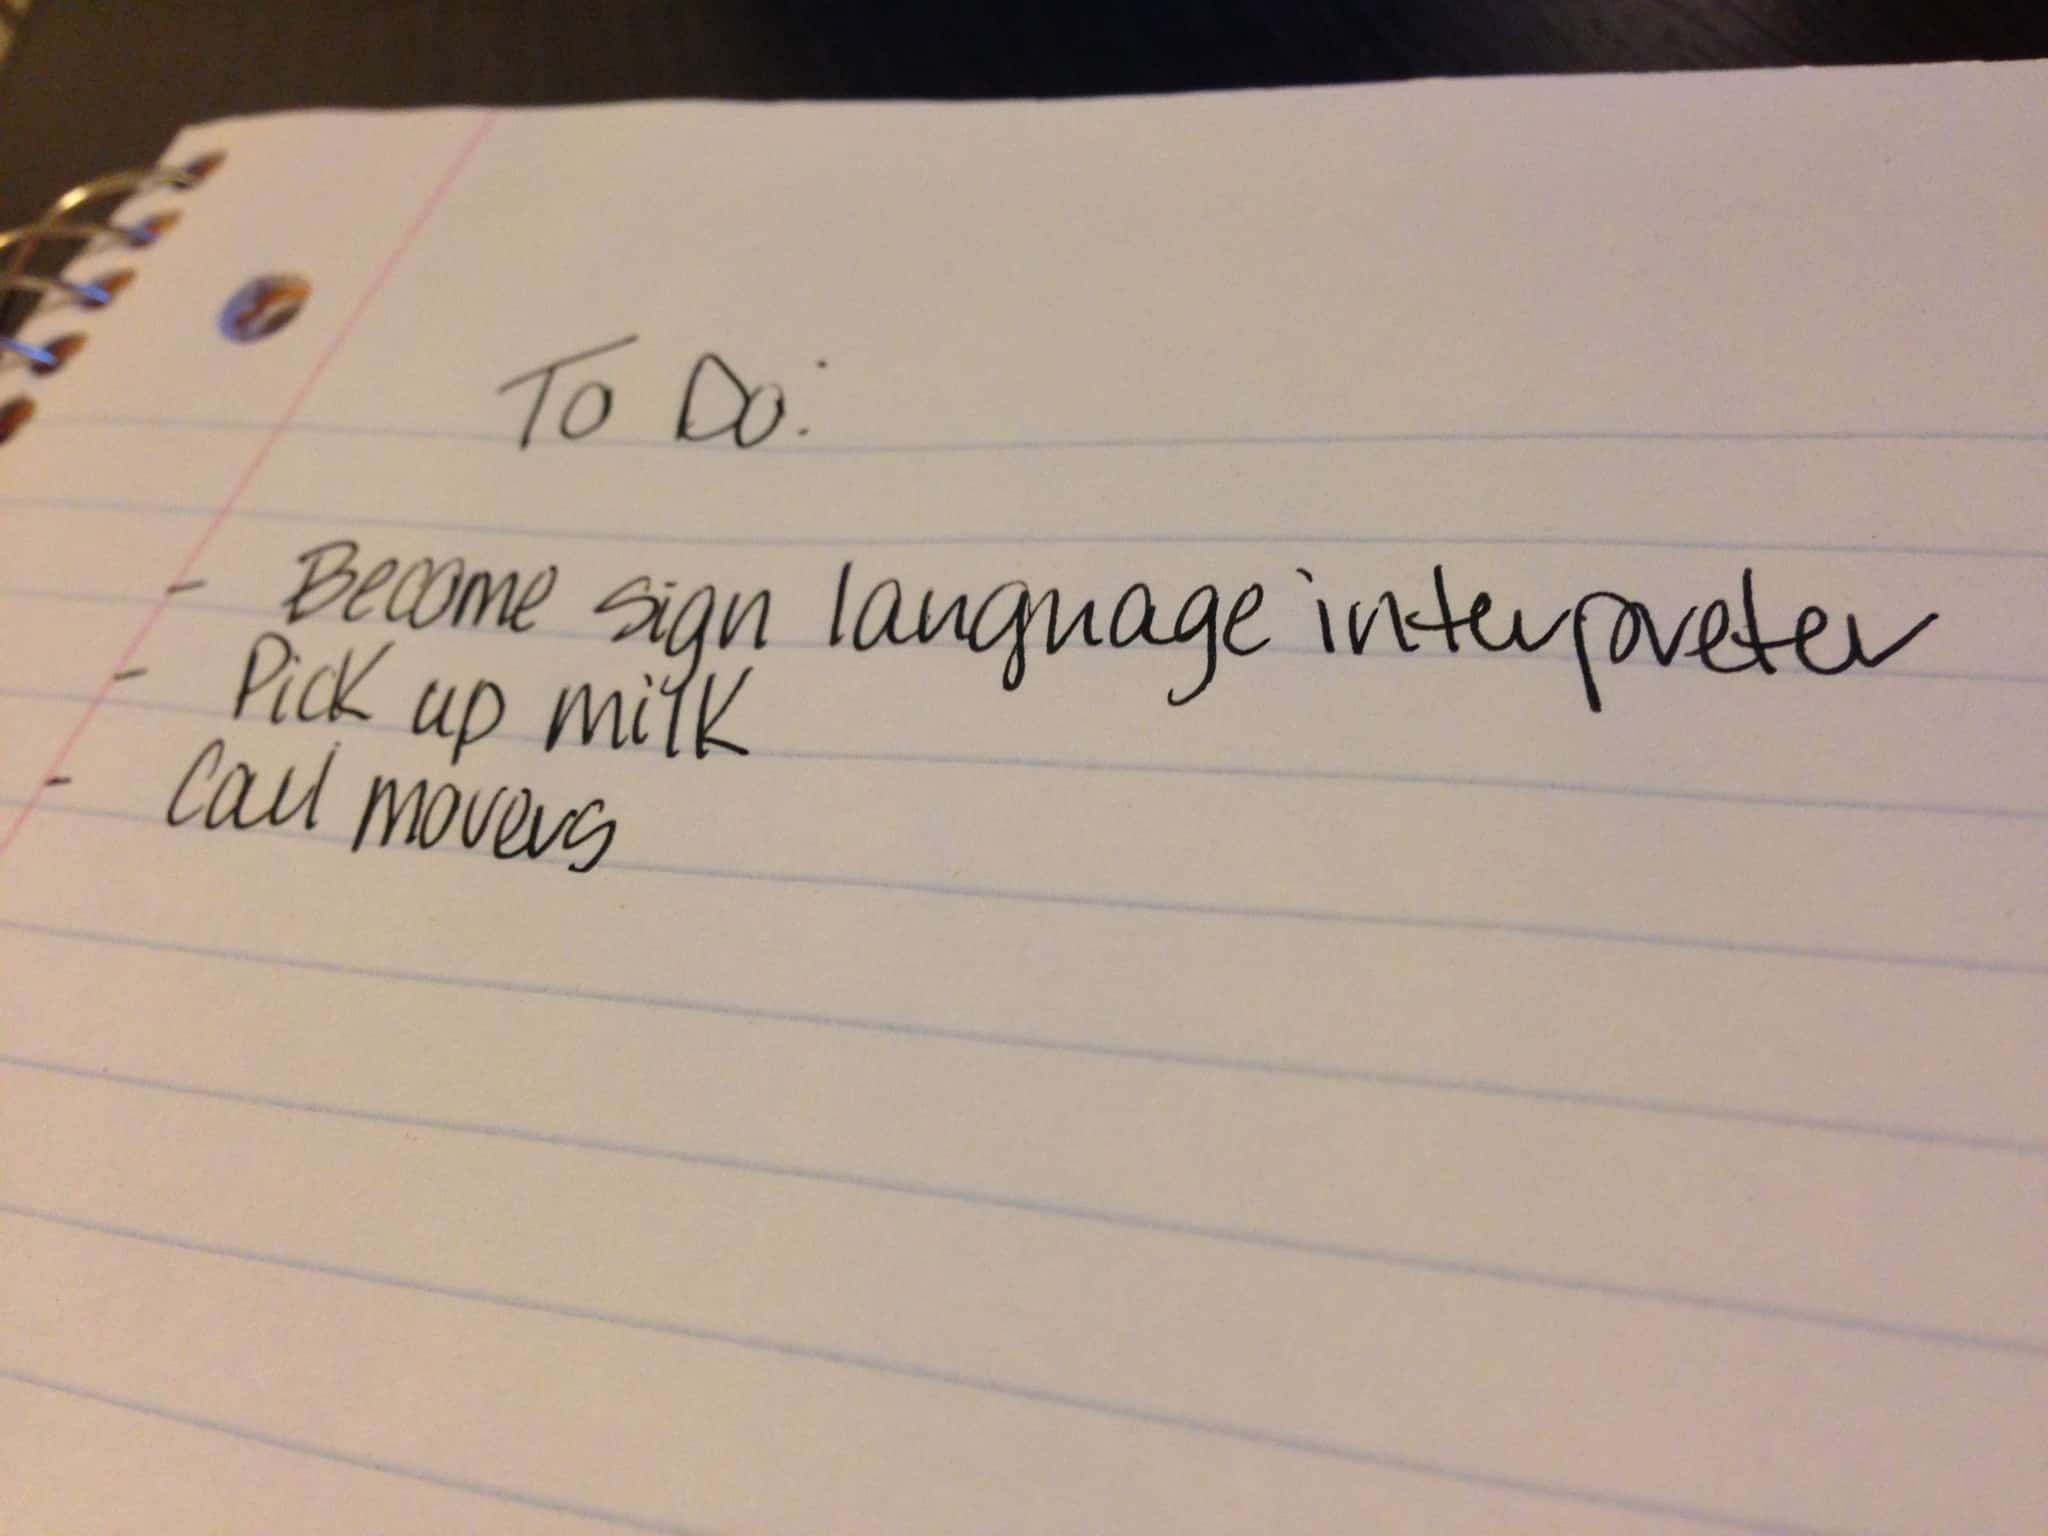 To Do:
- Become sign language interpreter
- Pick up milk
- Call movers